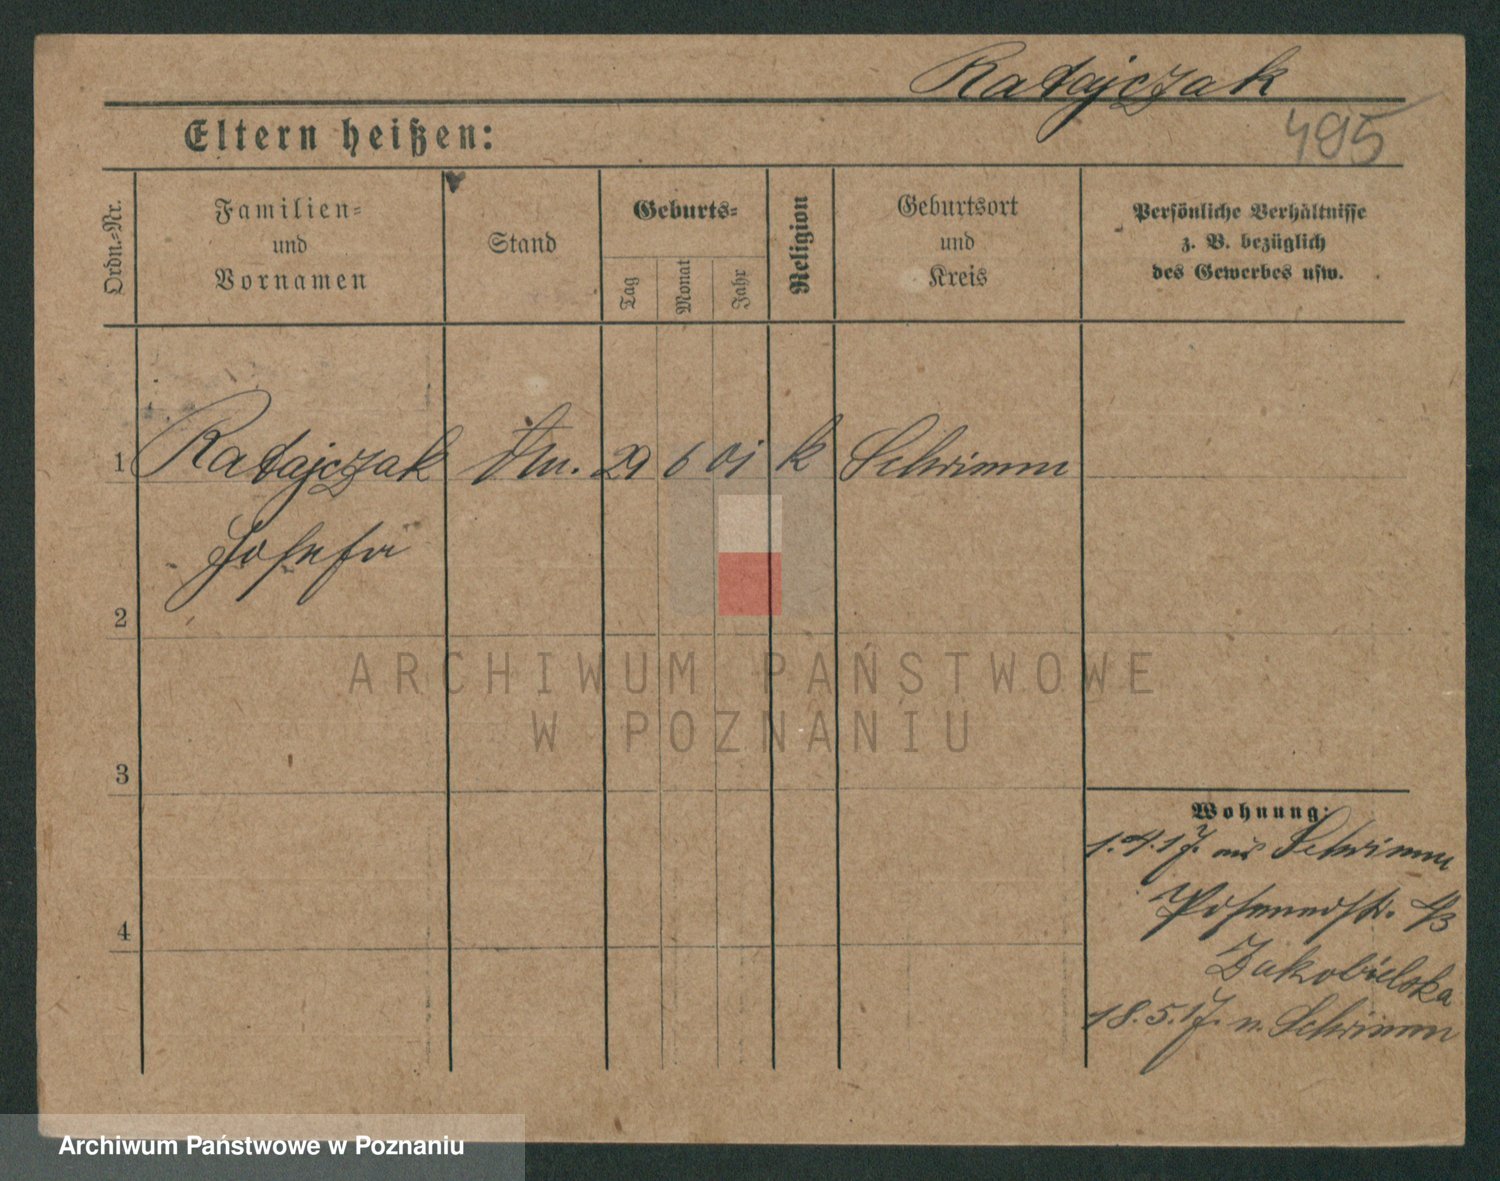 Ratajczak
495
Eltern heißen:
Ordn.-Nr.
Familien-
und
Vornamen
Stand
Geburts-
Tag
Monat
Jahr
Religion
Geburtsort
und
Kreis
Persönliche Verhältnisse
z. B. bezüglich
des Gewerbes usw.
1 Ratajczak 29 6 01 k Schrimm
Josefa
2
ARCHIWUM PAŃSTWOWE
W POZNANIU
3
Wohnung:
1.4.17. aus Schrimm
Posenerstr.
4
Jakobielska
18.5.17. n. Schrimm
Archiwum Państwowe w Poznaniu